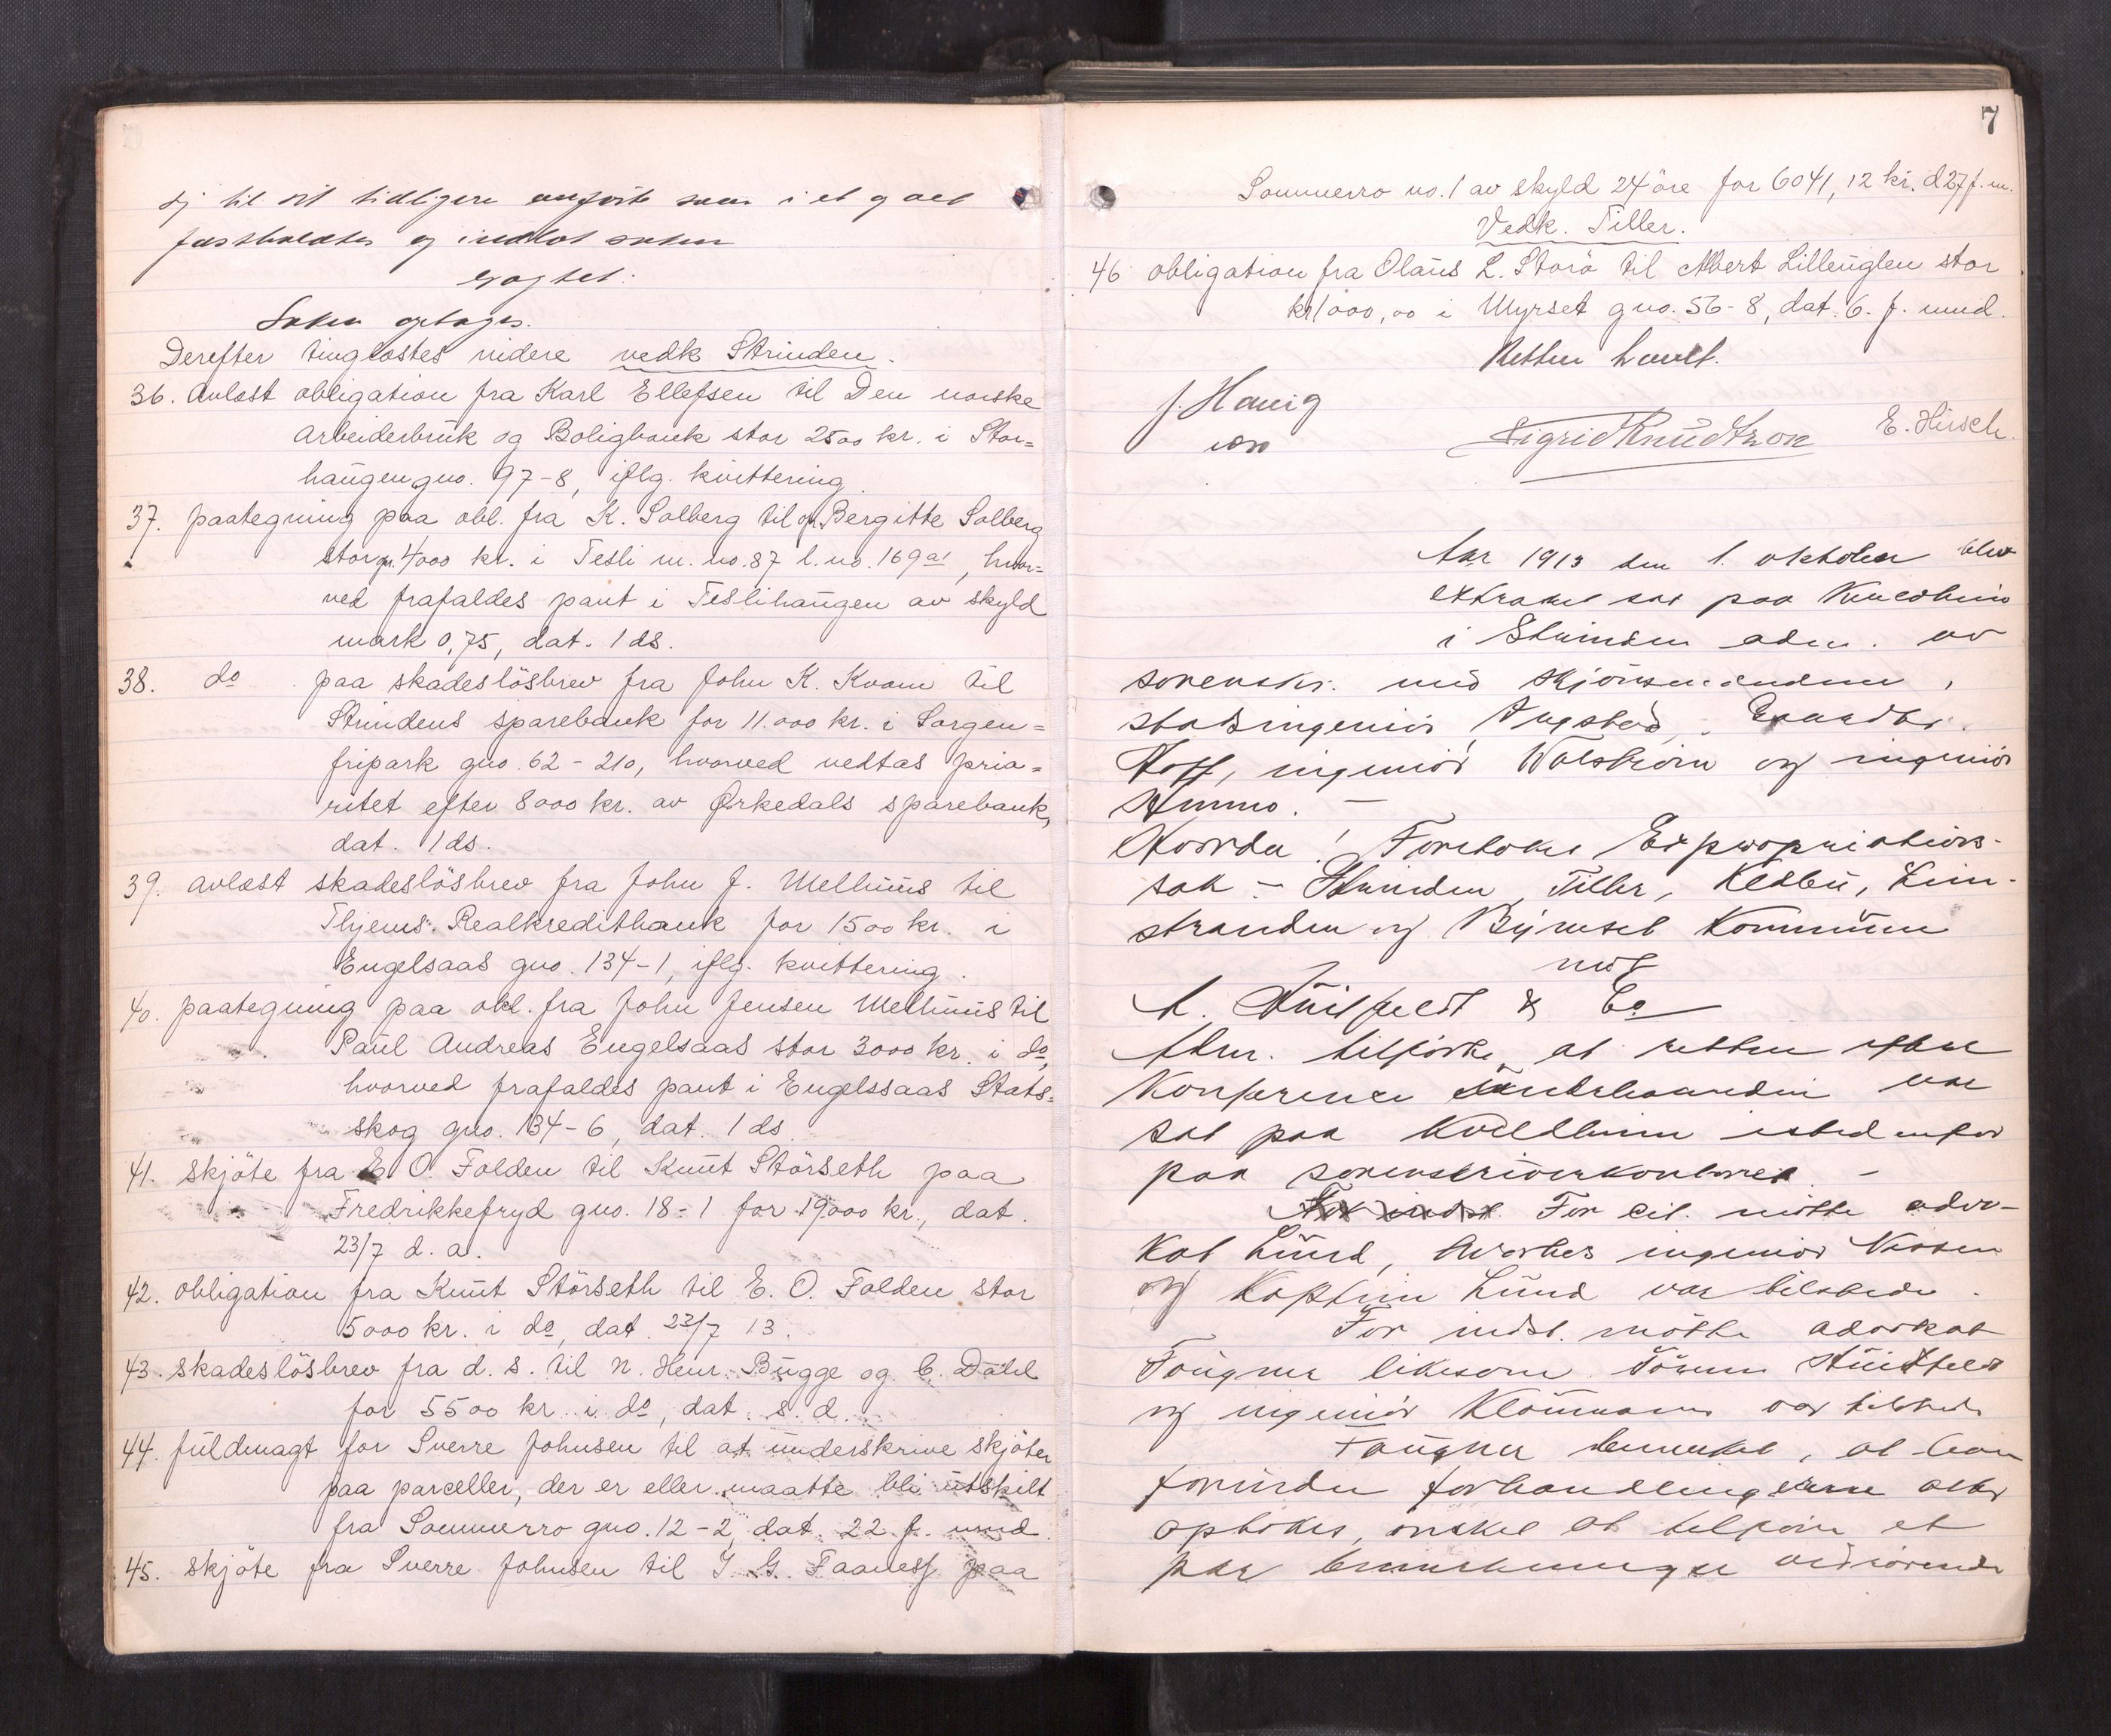 sej til sit tidligere anførte som i et og alt
fastholdtes og indlot saken
Saken optages.
Derefter tinglæstes videre vedk Strinden.
36. Avlæst obligation fra Karl Ellefsen til Den norske
Arbeiderbruk og Boligbank stor 2500 kr. i Stor=
haugen gno. 97-8, iflg. kvittering.
37. paategning paa obl. fra K. Solberg til gr. Bergitte Solberg
stor gr. 4000 kr. i Tesli m. no. 87 l. no. 169a1, hvor=
ved frafaldes pant i Teslihaugen av skyld
mark 0,75, dat. 1 ds.
38. do paa skadesløsbrev fra John K. Kvam til
Strindens sparebank for 11.000 kr. i Sorgen=
fripark gno. 62-210, hvorved vedtas prio=
ritet efter 8000 kr. av Ørkedals sparebank,
dat. 1 ds.
39. avlæst skadesløsbrev fra John J. Melhuus til
Thjems. Realkreditbank for 1500 kr. i
Engelsaas gno. 134-1, iflg. kvittering.
40. paategning paa obl. fra John Jensen Melhuus til
Paul Andreas Engelsaas stor 3000 kr. i do,
hvorved frafaldes pant i Engelssaas Stats=
skog gno. 134-6, dat. 1 ds.
41. skjøte fra E. O. Folden til Knut Størseth paa
Fredrikkefryd gno. 18-1 for 19000 kr., dat.
23/7 d. a.
42. obligation fra Knut Størseth til E. O. Folden stor
5000 kr. i do, dat. 23/7 13.
43. skadesløsbrev fra d. s. til N. Henr. Bugge og C. Dahl
for 5500 kr. i do, dat. s. d.
44. fuldmagt for Sverre Johnsen til at underskrive skjøter
paa parceller, der er eller maatte bli utskilt
fra Sommerro gno. 12-2, dat. 22 f. mnd.
45. skjøte fra Sverre Johnsen til J. G. Faanes paa
7
Sommerro no. 1 av skyld 24 øre for 6041,12 kr. d 27 f. m.
Vedk. Tiller.
46 obligation fra Olaus L. Storø til Albert Lilleuglen stor
kr 1000,00 i Myrset gno. 56-8, dat. 6. f. mnd.
Retten hævet.
J. Havig
Sigrid Knudtzon E. Hirsch.
Aar 1913 den 1. oktober blev
extraret sat paa
i Strinden adm. av
sorenskr. med skjønsmændene,
statsingeniør
Hoff, ingeniør og ingeniør
Hvorda! Foretokes Expropriations-
sak - Strinden, Tiller, Klæbu, Lein-
stranden og Byneset Kommune
mot
A. Huitfeldt & Co
Adm. tilførte, at retten efter
Konference var
sat paa istedenfor
paa sorenskriverkontoret. -
For cit. møtte advo-
kat Lund, ingeniør
og Kaptein Lund var tilstede.
For indst. møtte advokat
Fougner likesom Huitfeldt
og ingeniør var tilstede
Fougner bemerket, at han
forinden forhandlingerne atter
optokes, ønsket at tilføie et
par bemerkninger vedrørende